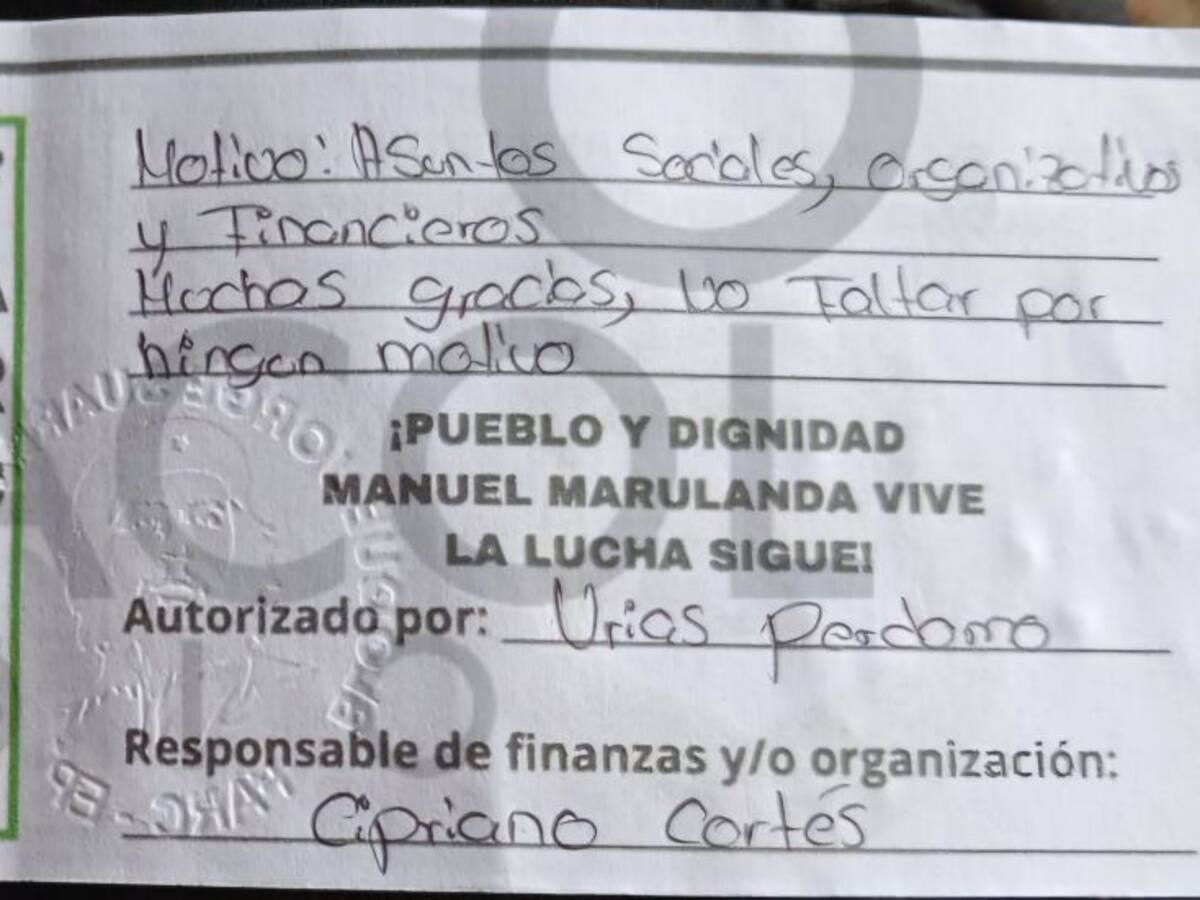 Motivo: Asuntos Sociales, organizativos
y Financieros
Muchas gracias, No Faltar por
ningun motivo
¡PUEBLO Y DIGNIDAD
MANUEL MARULANDA VIVE
LA LUCHA SIGUE!
Autorizado por: Urias Perdomo
Responsable de finanzas y/o organización:
Cipriano Cortés
COL
FARC - EP